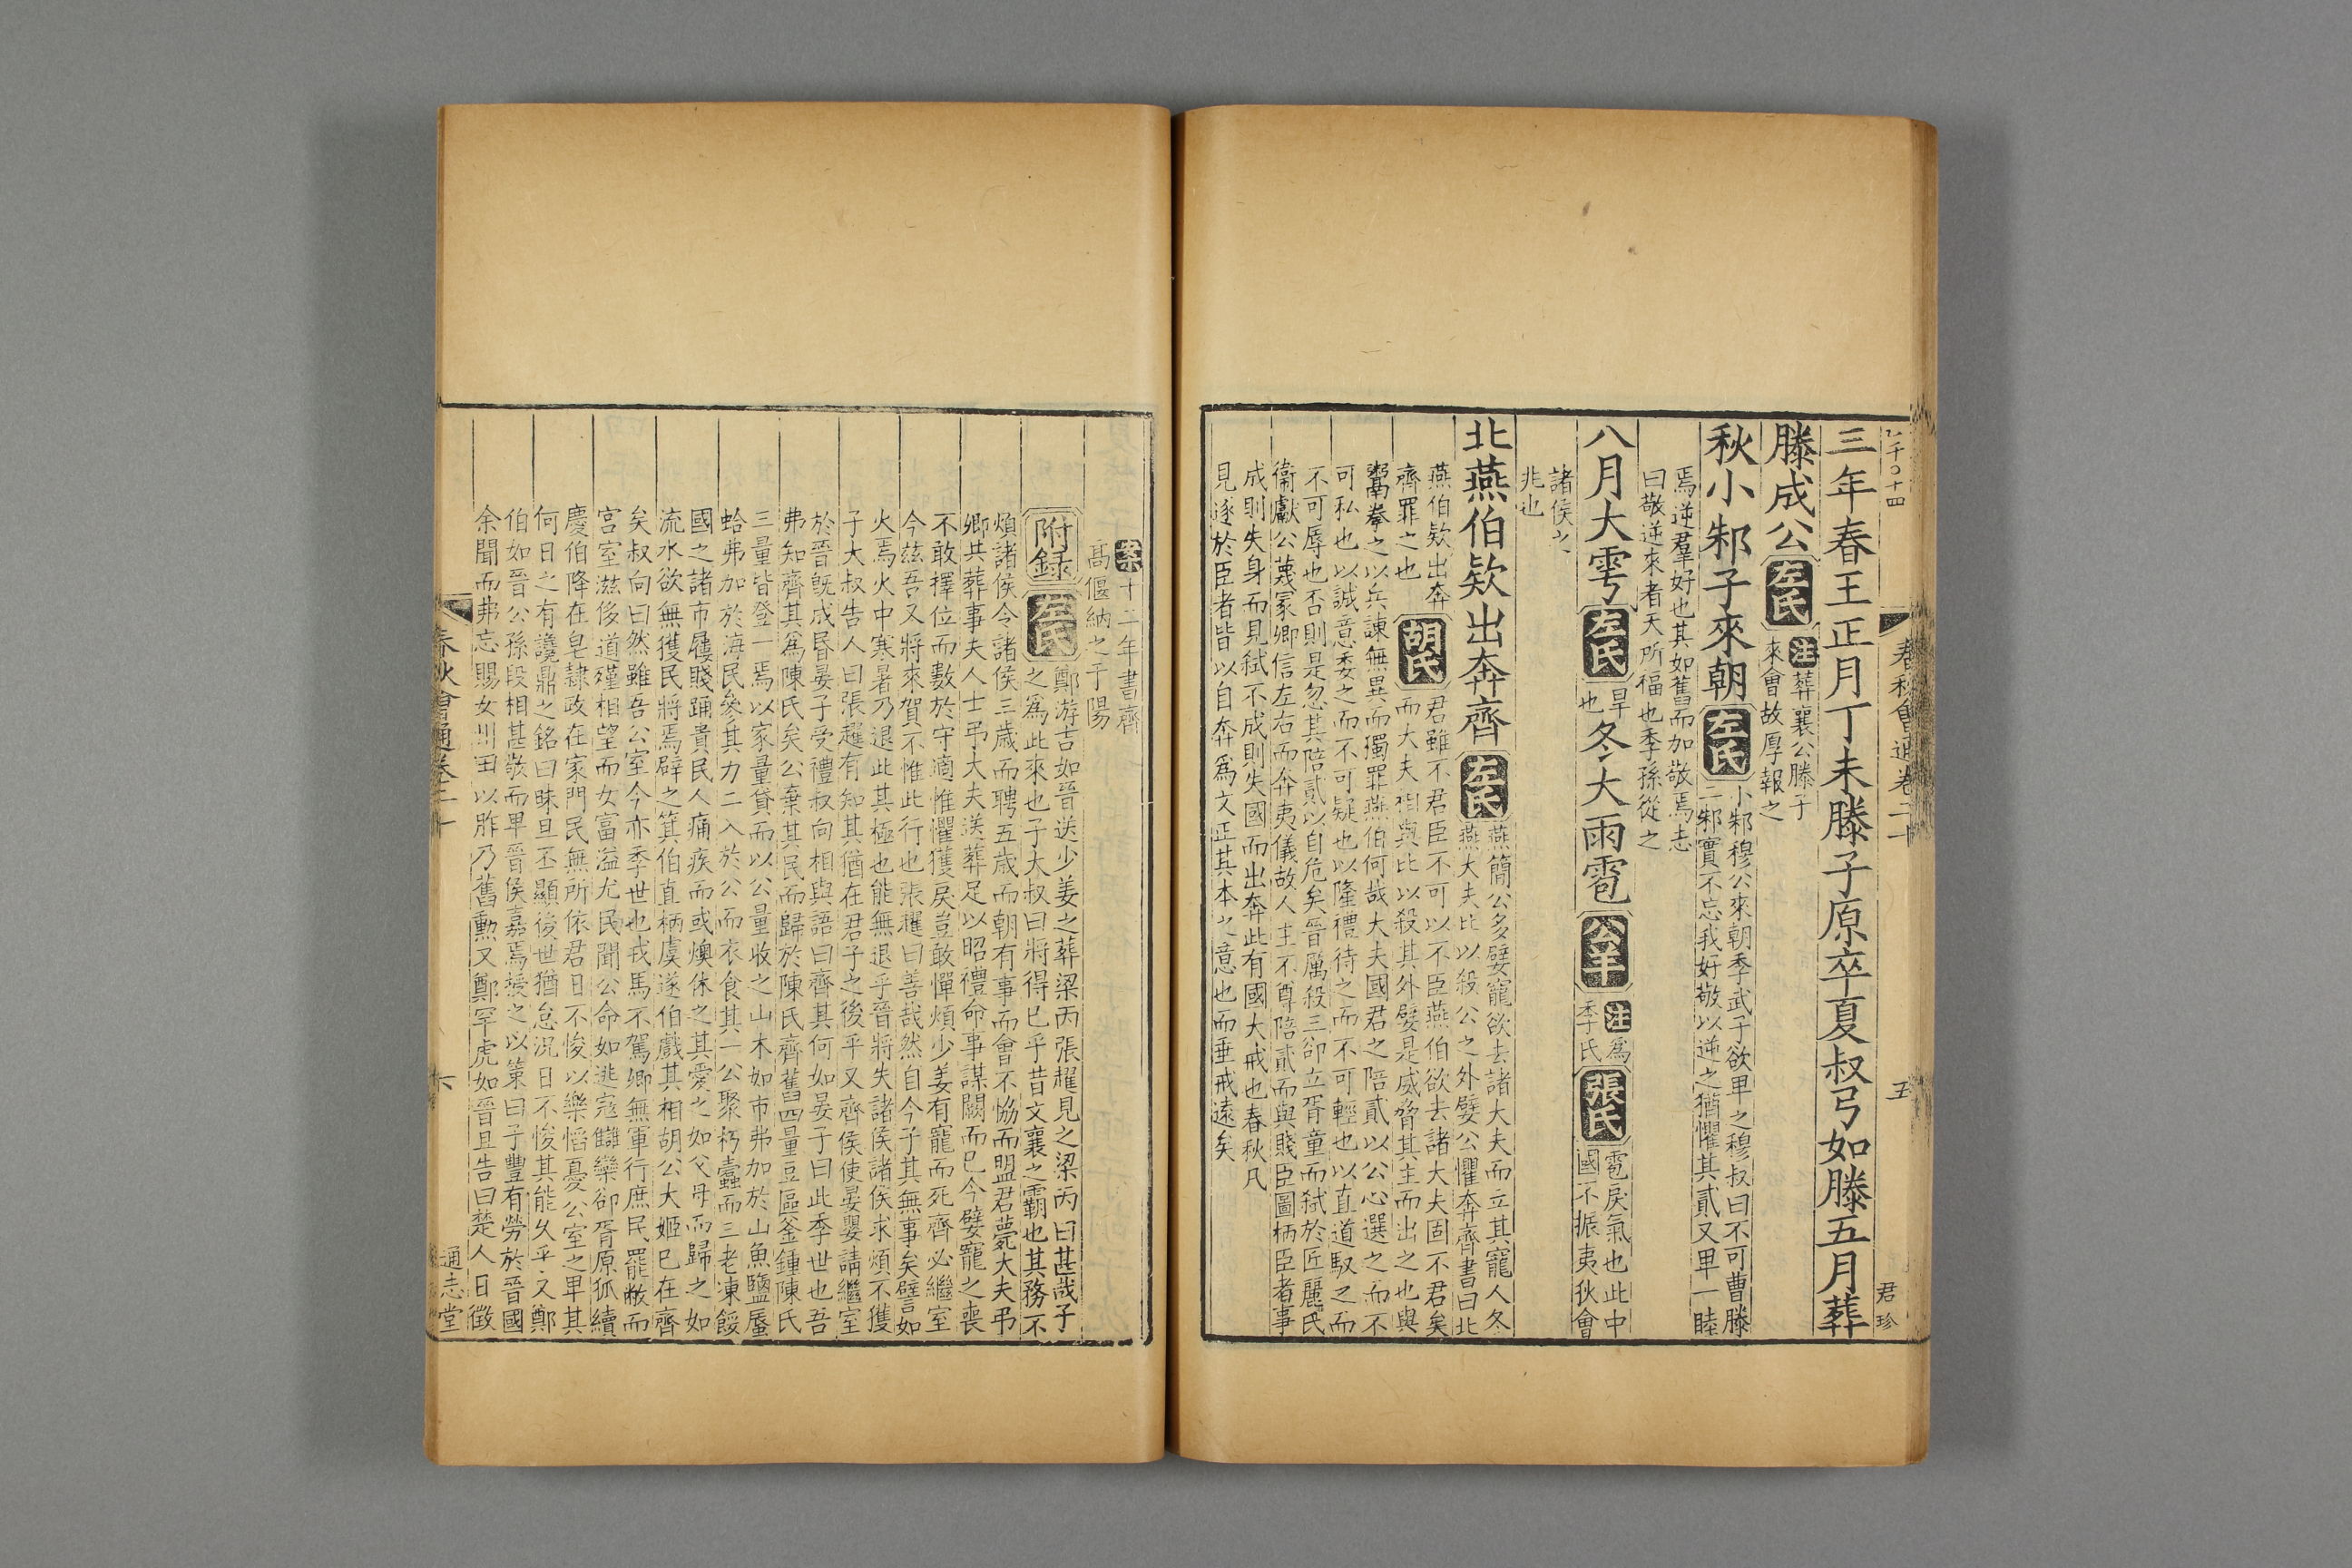 春秋會通卷二十
五
君珍
三年春王正月丁未滕子原卒夏叔弓如滕五月葬
滕成公
左氏
注
葬襄公滕子
來會故厚報之
秋小邾子來朝
左氏
小邾穆公來朝季武子欲卑之穆叔曰不可曹滕
二邾實不忘我好敬以逆之猶懼其貳又卑一睦
焉逆羣好也其如舊而加敬焉志
曰敬逆來者天所福也季孫從之
八月大雩
左氏
旱
也
冬大雨雹
公羊
注
爲
季氏
張氏
雹戾氣也此中
國不振夷狄會
諸侯之
兆也
北燕伯欵出奔齊
左氏
燕簡公多嬖寵欲去諸大夫而立其寵人冬
燕大夫比以殺公之外嬖公懼奔齊書曰北
燕伯欵出奔
齊罪之也
胡氏
君雖不君臣不可以不臣燕伯欲去諸大夫固不君矣
而大夫相與比以殺其外嬖是威脅其主而出之也與
鬻拳之以兵諫無異而獨罪燕伯何哉大夫國君之陪貳以公心選之而不
可私也以誠意委之而不可疑也以隆禮待之而不可輕也以直道馭之而
不可辱也否則是忽其陪貳以自危矣晉厲殺三卻立胥童而弑於匠麗氏
衞獻公蔑冢卿信左右而奔夷儀故人主不尊陪貳而與賤臣圖柄臣者事
成則失身而見弑不成則失國而出奔此有國大戒也春秋凡
見逐於臣者皆以自奔爲文正其本之意也而垂戒遠矣
案
十二年書齊
高偃納之于陽
附録
左氏
鄭游吉如晉送少姜之葬梁丙張趯見之梁丙曰甚哉子
之爲此來也子大叔曰將得已乎昔文襄之霸也其務不
煩諸侯令諸侯三歲而聘五歲而朝有事而會不協而盟君薨大夫弔
卿共葬事夫人士弔大夫送葬足以昭禮命事謀闕而已今嬖寵之喪
不敢擇位而數於守適惟懼獲戾豈敢憚煩少姜有寵而死齊必繼室
今兹吾又將來賀不惟此行也張趯曰善哉然自今子其無事矣譬如
火焉火中寒暑乃退此其極也能無退乎晉將失諸侯諸侯求煩不獲
子大叔告人曰張趯有知其猶在君子之後乎又齊侯使晏嬰請繼室
於晉旣成昏晏子受禮叔向相與語曰齊其何如晏子曰此季世也吾
弗知齊其爲陳氏矣公棄其民而歸於陳氏齊舊四量豆區釜鍾陳氏
三量皆登一焉以家量貸而以公量收之山木如市弗加於山魚鹽蜃
蛤弗加於海民參其力二入於公而衣食其一公聚朽蠹而三老凍餒
國之諸市屨賤踊貴民人痛疾而或燠休之其愛之如父母而歸之如
流水欲無獲民將焉辟之箕伯直柄虞遂伯戲其相胡公大姬已在齊
矣叔向曰然雖吾公室今亦季世也戎馬不駕卿無軍行庶民罷敝而
宮室滋侈道殣相望而女富溢尤民聞公命如逃寇讎欒卻胥原狐續
慶伯降在皂隷政在家門民無所依君日不悛以樂慆憂公室之卑其
何日之有讒鼎之銘曰昧旦丕顯後世猶怠況日不悛其能久乎又鄭
伯如晉公孫段相甚敬而卑晉侯嘉焉授之以策曰子豐有勞於晉國
余聞而弗忘賜女州田以胙乃舊勲又鄭罕虎如晉且告曰楚人日徵
春秋會通卷二十
六
通志堂